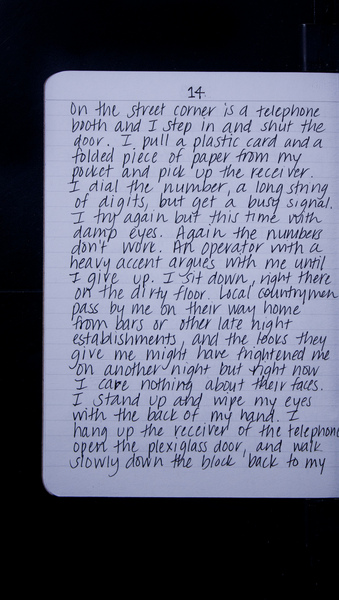 14
On the street corner is a telephone
booth and I step in and shut the
door. I pull a plastic card and a
folded piece of paper from my
pocket and pick up the receiver.
I dial the number, a long string
of digits, but get a busy signal.
I try again but this time with
damp eyes. Again the numbers
don't work. An operator with a
heavy accent argues with me until
I give up. I sit down, right there
on the dirty floor. Local countrymen
pass by me on their way home
from bars or other late night
establishments, and the looks they
give me might have frightened me
on another night but right now
I care nothing about their faces.
I stand up and wipe my eyes
with the back of my hand. I
hang up the receiver of the telephone
open the plexiglass door, and walk
slowly down the block back to my